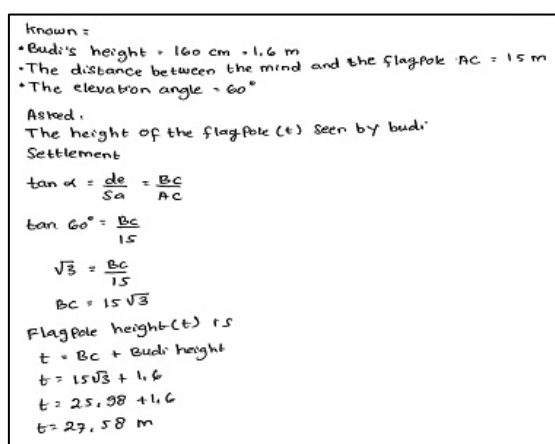 Known =
• Budi's height = 160 cm = 1,6 m
• The distance between the mind and the flagpole AC = 15 m
• The elevation angle = 60°
Asked.
The height of the flagpole (t) seen by budi
Settlement
tan α = de/Sa = BC/AC
tan 60° = BC/15
√3 = BC/15
BC = 15 √3
Flagpole height (t) is
t = BC + Budi height
t = 15√3 + 1,6
t = 25,98 + 1,6
t = 27,58 m